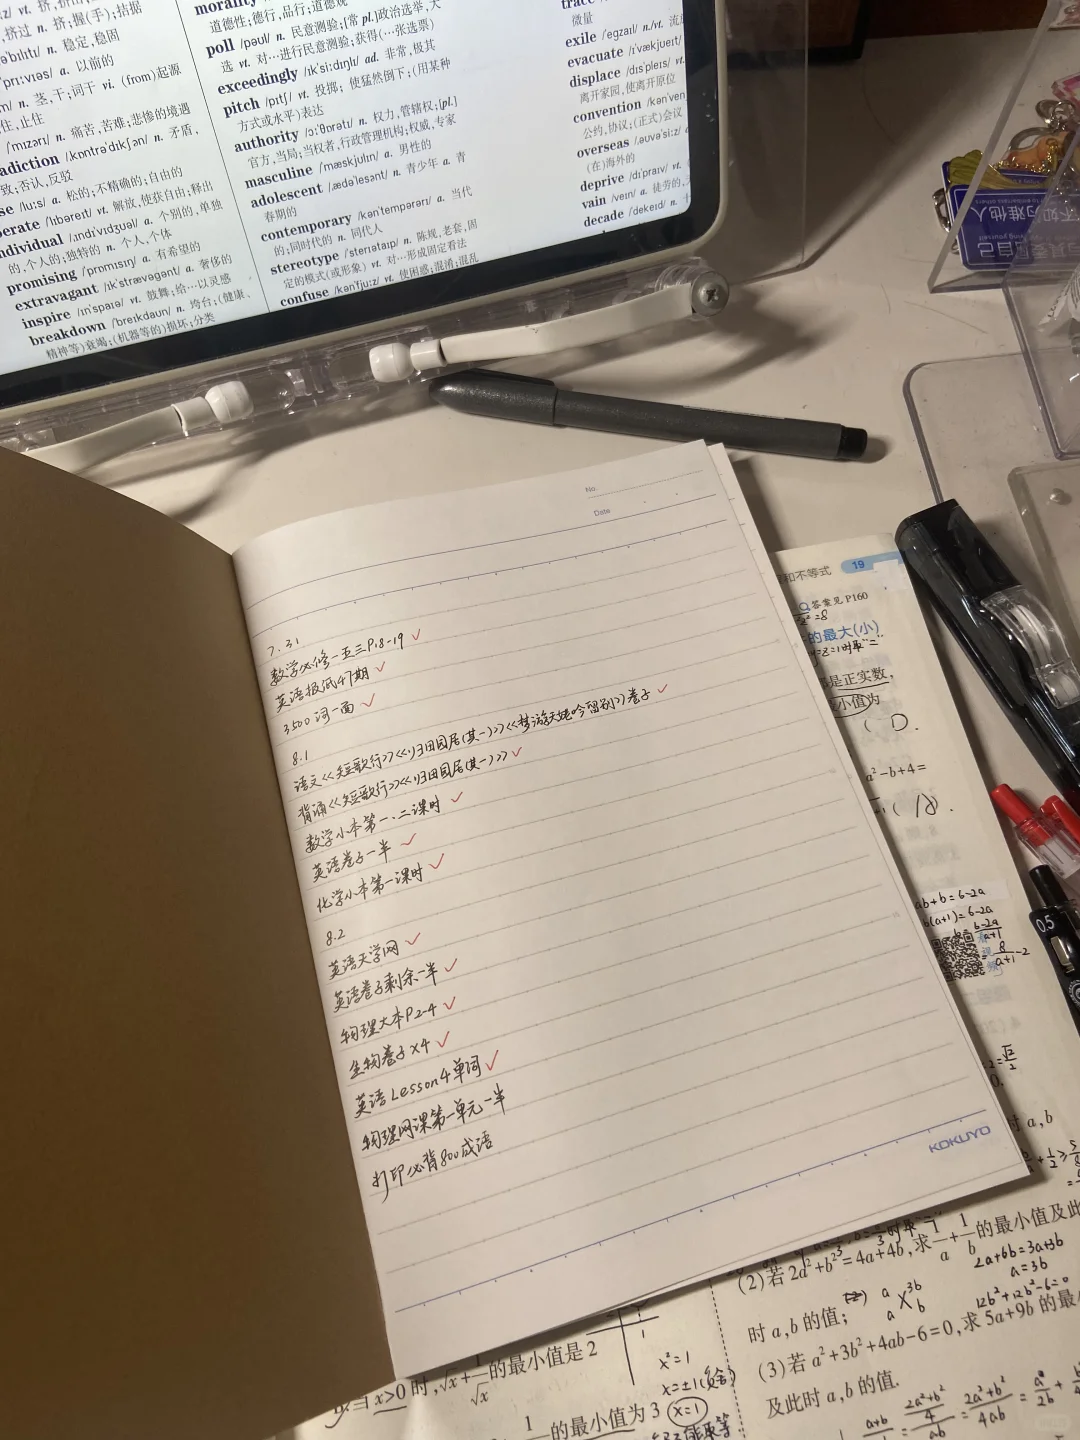 挤过 n. 挤;握(手);拮据
n. 稳定,稳固
a. 以前的
n. 茎,干;词干 vi. (from)起源
住,止住
/ˈmɪzərɪ/ n. 痛苦,苦难;悲惨的境遇
adiction /ˌkɒntrəˈdɪkʃən/ n. 矛盾,
致;否认,反驳
se /luːs/ a. 松的;不精确的;自由的
erate /ˈlɪbəreɪt/ vt. 解放,使获自由;释出
ndividual /ˌɪndɪˈvɪdʒʊəl/ a. 个别的,单独
的,个人的;独特的 n. 个人,个体
promising /ˈprɒmɪsɪŋ/ a. 有希望的
extravagant /ɪkˈstrævəgənt/ a. 奢侈的
inspire /ɪnˈspaɪə/ vt. 鼓舞;给…以灵感
breakdown /ˈbreɪkdaʊn/ n. 垮台;(健康、
精神等)衰竭;(机器等的)损坏;分类
morality
道德性;德行,品行;道德观
poll /pəʊl/ n. 民意测验;[常 pl.]政治选举,大
选 vt. 对…进行民意测验;获得(…张选票)
exceedingly /ɪkˈsiːdɪŋlɪ/ ad. 非常,极其
pitch /pɪtʃ/ vt. 投掷; 使猛然倒下;(用某种
方式或水平)表达
authority /ɔːˈθɒrətɪ/ n. 权力,管辖权;[pl.]
官方,当局;当权者,行政管理机构;权威,专家
masculine /ˈmæskjʊlɪn/ a. 男性的
adolescent /ˌædəˈlesənt/ n. 青少年 a. 青
春期的
contemporary /kənˈtempərərɪ/ a. 当代
的;同时代的 n. 同代人
stereotype /ˈsterɪətaɪp/ n. 陈规,老套,固
定的模式(或形象) vt. 对…形成固定看法
confuse /kənˈfjuːz/ vt. 使困惑;混淆;混乱
trace
微量
exile /ˈegzaɪl/ n./vt. 流
evacuate /ɪˈvækjʊeɪt/
displace /dɪsˈpleɪs/ vt.
离开家园,使离开原位
convention /kənˈven
公约,协议;(正式)会议
overseas /ˌəʊvəˈsiːz/
(在)海外的
deprive /dɪˈpraɪv/ vt.
vain /veɪn/ a. 徒劳的,
decade /ˈdekeɪd/ n.
不如
为难他人
自己
No.
Date
7.31
数学必修一五三P18-19
英语报纸47期
3500词一面
8.1
语文<<短歌行>><<归田园居(其一)>><<梦游天姥吟留别>>卷子
背诵<<短歌行>><<归田园居(其一)>>
数学小本第一、二课时
英语卷子一半
化学小本第一课时
8.2
英语天学网
英语卷子剩余一半
物理大本P2-4
生物卷子×4
英语Lesson4单词
物理网课第一单元一半
打印必背800成语
KOKUYO
和不等式 19
答案见 P160
的最大(小)
是正实数,
小值为
( D.
a²-b+4=
( A).
ab+b=6-2a
b(a+1)=6-2a
b=6-2a/a+1
8/a+1 -2
0.5
时 a,b
(2)若 2a²+b²=4a+4b,求 1/a+1/b 的最小值及此
时 a,b 的值;
2a+6b=3a+3b
a=3b
12b²+12b²-6=0
(3)若 a²+3b²+4ab-6=0,求 5a+9b 的最
及此时 a,b 的值.
当 x>0 时,√x+1/√x 的最小值是 2
x²=1
x=±1(负舍)
的最小值为 3 x=1
能取等